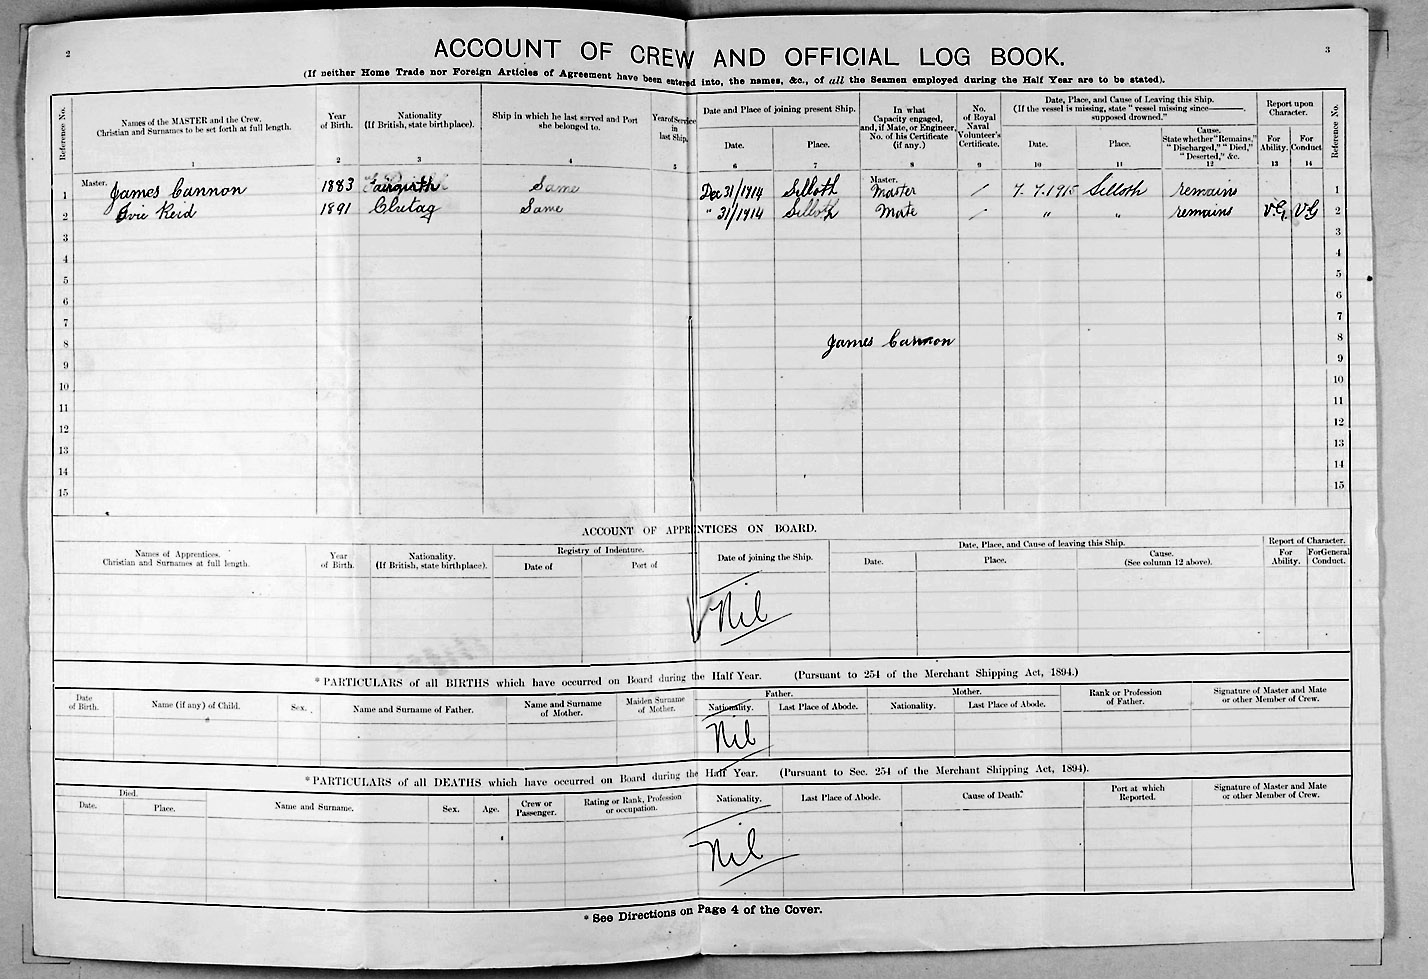 2
3
ACCOUNT OF CREW AND OFFICIAL LOG BOOK.
(If neither Home Trade nor Foreign Articles of Agreement have been entered into, the names, &c., of all the Seamen employed during the Half Year are to be stated).
Reference No.
Names of the MASTER and the Crew. Christian and Surnames to be set forth at full length.
Year of Birth.
Nationality (If British, state birthplace).
Ship in which he last served and Port she belonged to.
Year of Service in last Ship.
Date and Place of joining present Ship.
Date.
Place.
In what Capacity engaged, and, if Mate, or Engineer, No. of his Certificate (if any.)
No. of Royal Naval Volunteer's Certificate.
Date, Place, and Cause of Leaving this Ship.
(If the vessel is missing, state "vessel missing since———. supposed drowned."
Date.
Place.
Cause. State whether "Remains," "Discharged," "Died," "Deserted," &c.
Report upon Character.
For Ability.
For Conduct
Reference No.
1 2 3 4 5 6 7 8 9 10 11 12 13 14
1 Master. James Cannon 1883 Same Dec 31/1914 Silloth Master. Master / 7. 7. 1915 Silloth remains 1
2 Evie Reid 1891 Same " 31/1914 Silloth Mate / " " remains V.G. V G 2
3 3
4 4
5 5
6 6
7 7
8 James Cannon 8
9 9
10 10
11 11
12 12
13 13
14 14
15 15
ACCOUNT OF APPRENTICES ON BOARD.
Names of Apprentices. Christian and Surnames at full length.
Year of Birth.
Nationality. (If British, state birthplace).
Registry of Indenture.
Date of
Port of
Date of joining the Ship.
Date, Place, and Cause of leaving this Ship.
Date.
Place.
Cause. (See column 12 above).
Report of Character.
For Ability.
For General Conduct.
Nil
*PARTICULARS of all BIRTHS which have occurred on Board during the Half Year. (Pursuant to 254 of the Merchant Shipping Act, 1894.)
Date of Birth.
Name (if any) of Child.
Sex.
Name and Surname of Father.
Name and Surname of Mother.
Maiden Surname of Mother.
Father.
Nationality.
Last Place of Abode.
Mother.
Nationality.
Last Place of Abode.
Rank or Profession of Father.
Signature of Master and Mate or other Member of Crew.
Nil
*PARTICULARS of all DEATHS which have occurred on Board during the Half Year. (Pursuant to Sec. 254 of the Merchant Shipping Act, 1894).
Died.
Date.
Place.
Name and Surname.
Sex.
Age.
Crew or Passenger.
Rating or Rank, Profession or occupation.
Nationality.
Last Place of Abode.
Cause of Death.*
Port at which Reported.
Signature of Master and Mate or other Member of Crew.
Nil
*See Directions on Page 4 of the Cover.